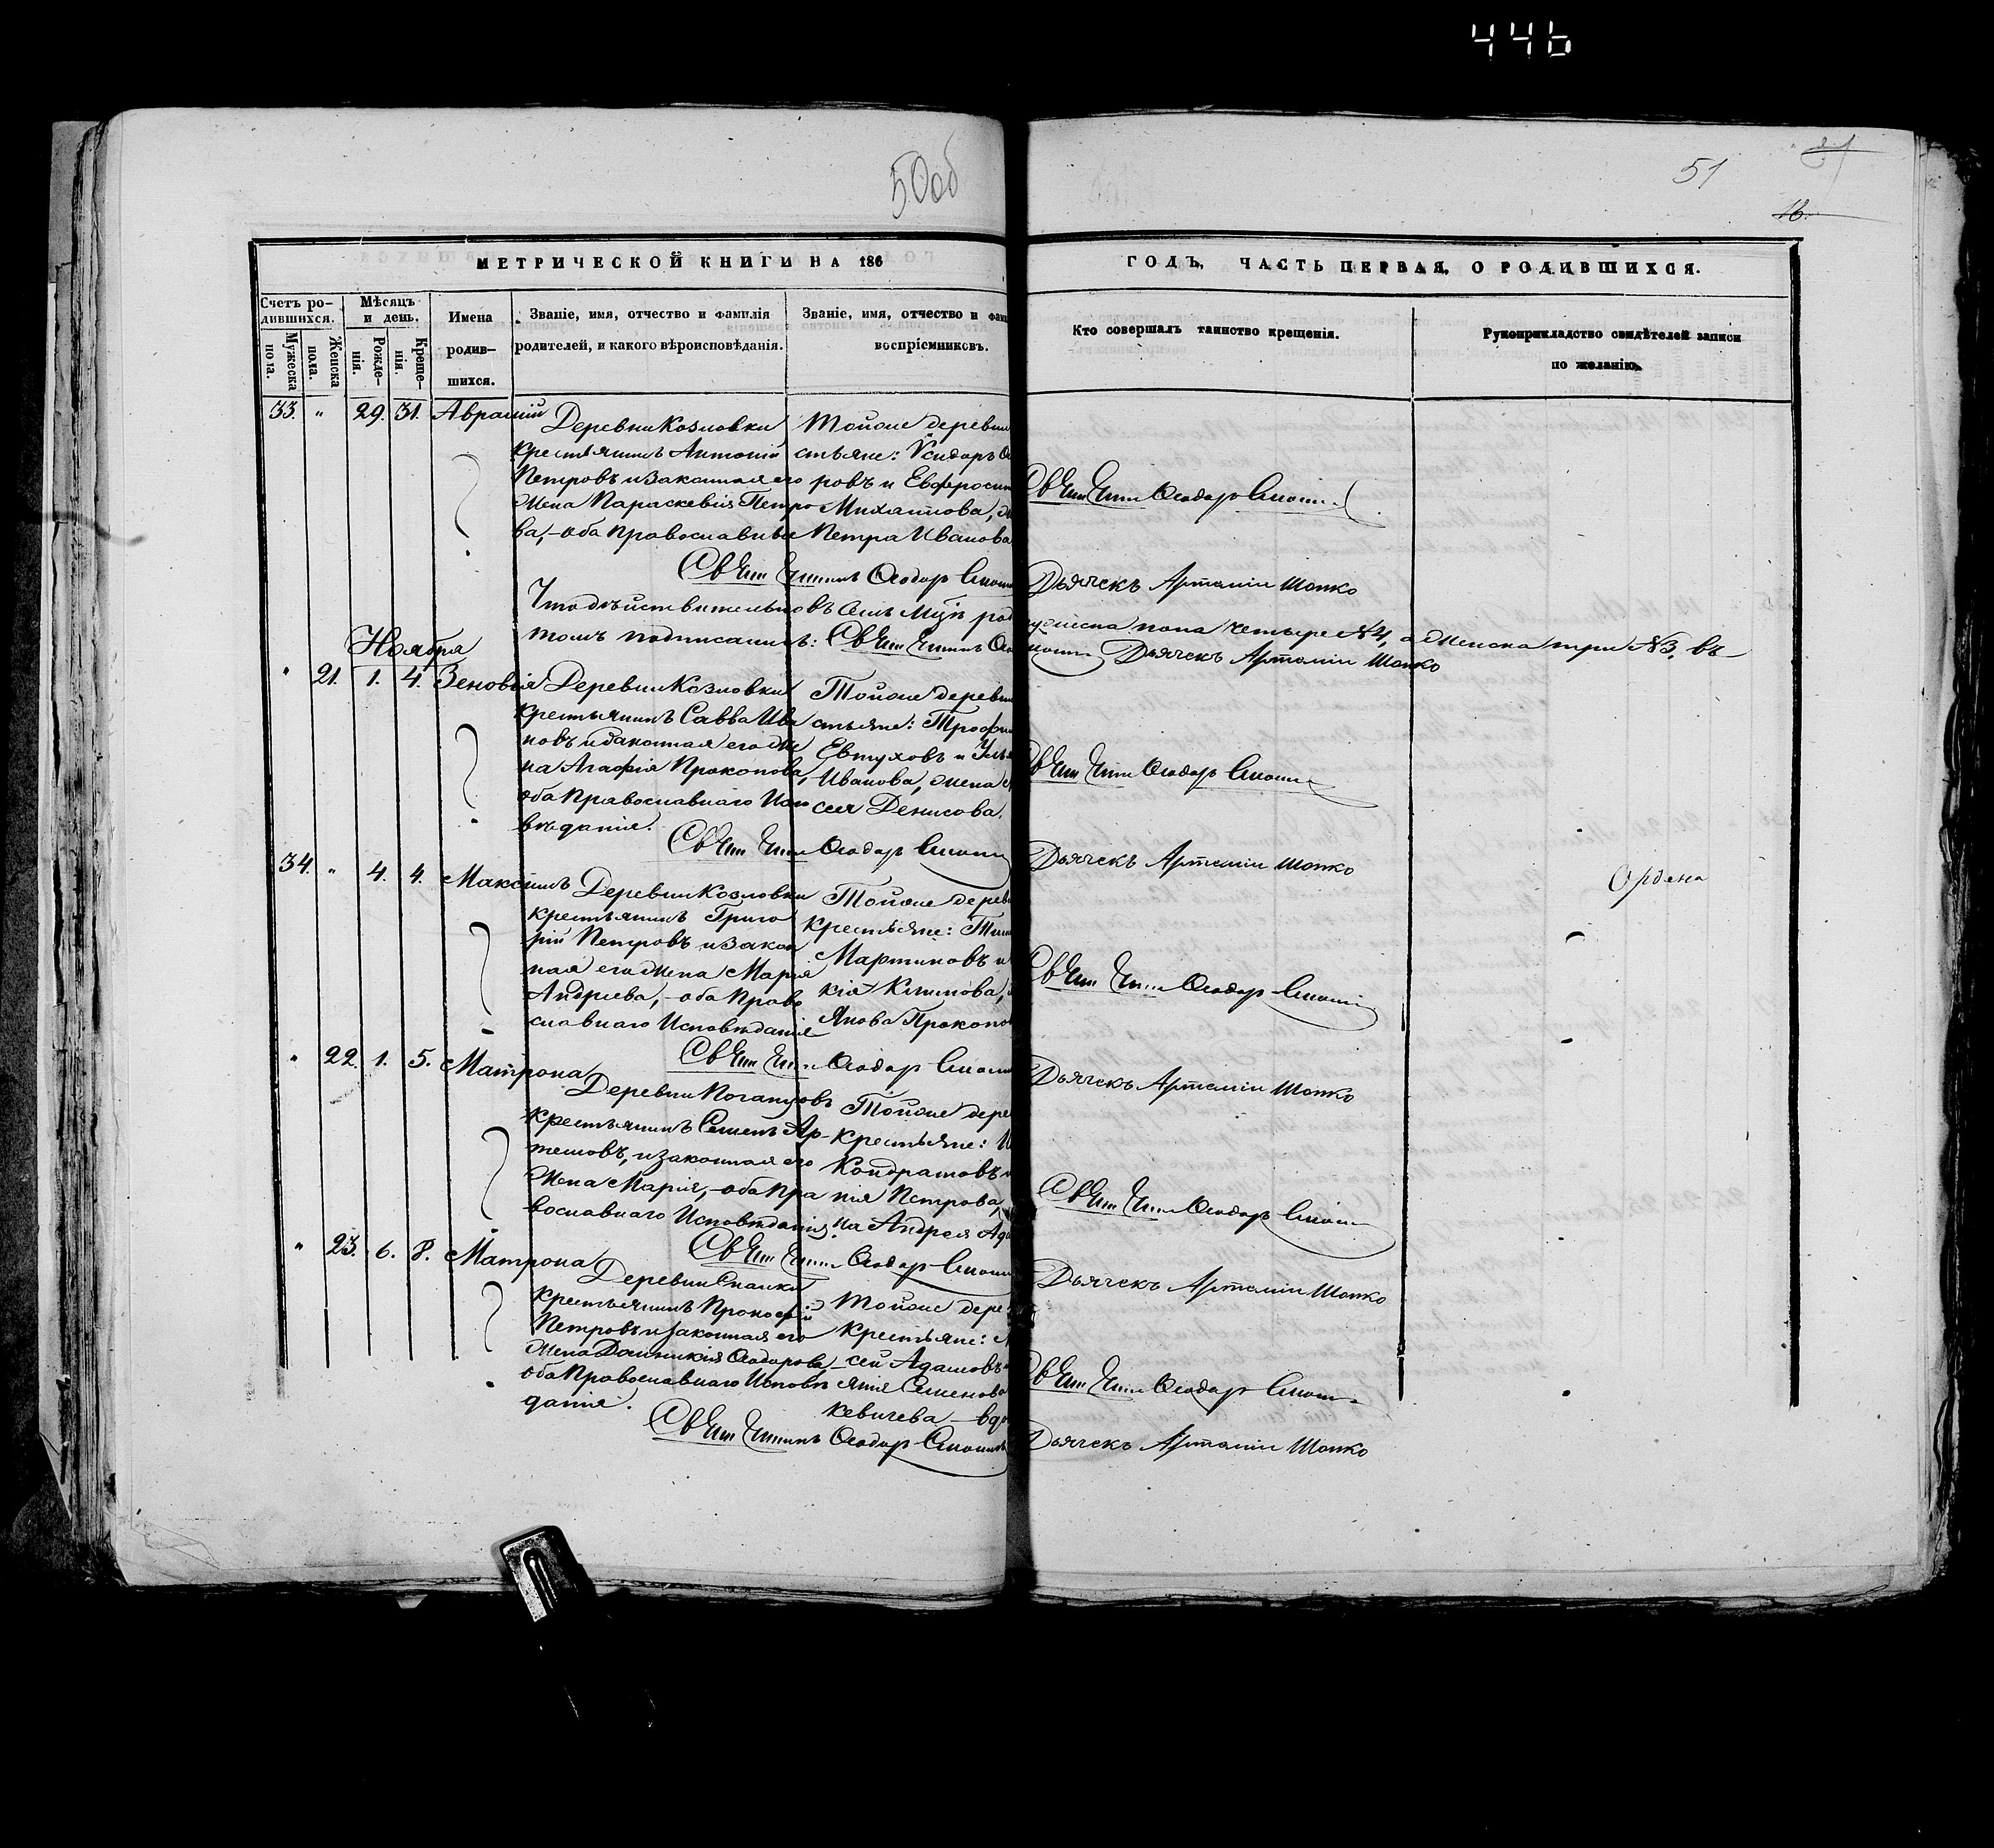 446
50об
51
51
16.
МЕТРИЧЕСКОЙ КНИГИ НА 186
ГОДЪ, ЧАСТЬ ПЕРВАЯ, О РОДИВШИХСЯ.
Счетъ ро-
дившихся.
Мужеска
пола.
Женска
пола.
Мѣсяцъ
и день.
Рожде-
нія.
Креще-
нія.
Имена
родив-
шихся.
Званіе, имя, отчество и фамилія
родителей, и какого вѣроисповѣданія.
Званіе, имя, отчество и фам
воспріемниковъ.
Кто совершалъ таинство крещенія.
Рукоприкладство свидѣтелей записи
по желанію.
33. " 29. 31. Аврамій
Деревни Козловки
крестьянинъ Антоній
Петровъ и законная его
жена Параскевія Петро
ва,-оба православные
Тойже деревни
стьяне: Ѵсидоръ
ровъ и Евфросин
Михаилова,
Петра Иванова
Ѳеодоръ
Ѳеодоръ
Дьячекъ Артемій Шопко
Что дѣйствительно въ семъ м-цѣ род
ужеска пола четыре №4, а женска три №3. въ
томъ подписались:
Дьячекъ Артемій Шопко
Ноября
" 21. 1. 4. Зеновія
Деревни Козловки
крестьянинъ Савва Ива
новъ и законная его же
на Агафія Прокопова,
оба Православнаго Испо
вѣданія.
Тойже деревни
стьяне: Трофи
Евтуховъ и Улья
Иванова, жена
сея Денисова.
Ѳеодоръ
Ѳеодоръ
Дьячекъ Артемій Шопко
34. " 4. 4. Максимъ
Деревни Козловки
крестьянинъ Григо
рій Петровъ и закон
ная его жена Марія
Андреева,-оба Право
славнаго Исповѣданія
Тойже дерев
крестьяне: Тим
Мартиновъ и
кія Климова,
Якова Прокопо
Ордена
Ѳеодоръ
Ѳеодоръ
Дьячекъ Артемій Шопко
" 22. 1. 5. Матрона
крестьянинъ Семенъ Ар-
темовъ, и законная его
жена Марія,-оба Пра
вославнаго Исповѣданія
Тойже дере
крестьяне:
Кондратовъ
нія Петрова,
на Андрея Ада
Ѳеодоръ
Ѳеодоръ
Дьячекъ Артемій Шопко
" 23. 6. 8. Матрона
Деревни
крестьянинъ Прокофій
Петровъ и законная его
жена Домникія Ѳеодорова
оба Православнаго Исповѣ
данія.
Тойже дере
крестьяне:
сей Адамовъ
Семенова
кевичева — вдо
Ѳеодоръ
Ѳеодоръ
Дьячекъ Артемій Шопко